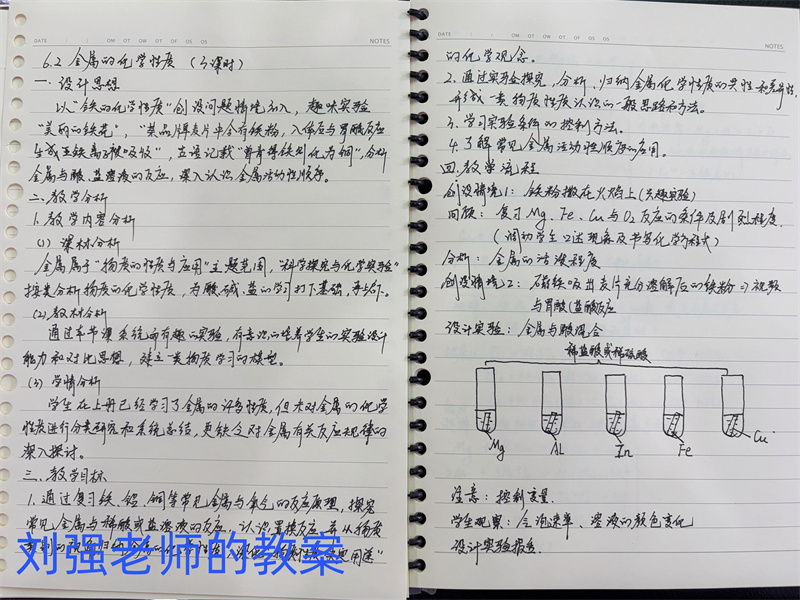 DATE
NOTES
6.2 金属的化学性质 (3课时)
一. 设计思想
以"铁的化学性质"创设问题情境引入，趣味实验
"美丽的铁花"，"某品牌麦片中含有铁粉，入体后与胃酸反应
生成亚铁离子被吸收"，古语记载"曾青得铁则化为铜"，分析
金属与酸、盐溶液的反应，深入认识金属活动性顺序。
二. 教学分析
1. 教学内容分析
(1) 课标分析
金属属于"物质的性质与应用"主题范围，"科学探究与化学实验"
按类分析物质的化学性质，为酸、碱、盐的学习打下基础，承上启下。
(2) 教材分析
通过本节课系统而有趣的实验，有意识的培养学生的实验设计
能力和对比思想，建立一类物质学习的模型。
(3) 学情分析
学生在上册已经学习了金属的许多性质，但未对金属的化学
性质进行分类研究和系统总结，更缺乏对金属有关反应规律的
深入探讨。
三. 教学目标
1. 通过复习铁、铝、铜等常见金属与氧气的反应原理，探究
常见金属与稀酸或盐溶液的反应，认识置换反应，并从物质
刘强老师的教案
DATE
NOTES
的化学观念。
2. 通过实验探究，分析、归纳金属化学性质的共性和差异性，
形成一类物质性质认识的一般思路和方法。
3. 学习实验条件的控制方法。
4. 了解常见金属活动性顺序的应用。
四. 教学流程
创设情境1: 铁粉撒在火焰上(兴趣实验)
回顾: 复习Mg、Fe、Cu与O₂反应的条件及剧烈程度.
(调动学生口述现象及书写化学方程式)
分析: 金属的活泼程度
创设情境2: 磁铁吸出麦片充分溶解后的铁粉⇒视频
与胃酸(盐酸)反应
设计实验: 金属与酸混合
稀盐酸或稀硫酸
Mg Al Zn Fe Cu
注意: 控制变量.
学生观察: 气泡速率、溶液的颜色变化
设计实验报告.